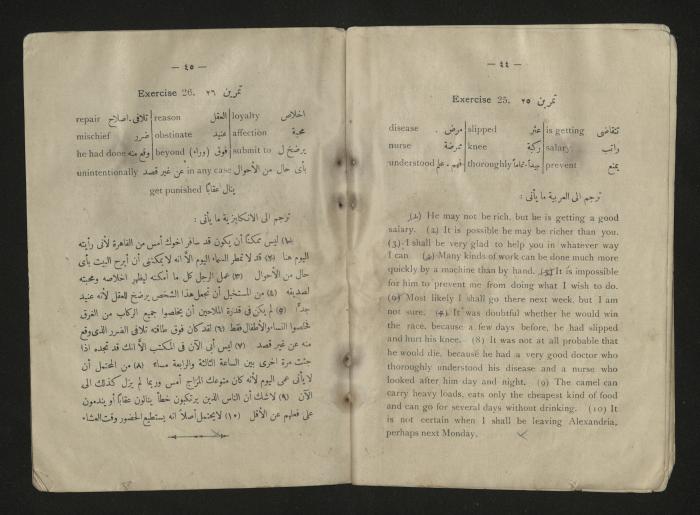 — ٤٤ —
Exercise 25. تمرين ٢٥
disease مرض . slipped عثر is getting يتقاضى
nurse ممرضة knee ركبة salary راتب
understood فهم . علم thoroughly جيداً . تماماً prevent يمنع
ترجم الى العربية ما يأتى :
(1) He may not be rich, but he is getting a good
salary. (2) It is possible he may be richer than you.
(3) I shall be very glad to help you in whatever way
I can (4) Many kinds of work can be done much more
quickly by a machine than by hand. (5) It is impossible
for him to prevent me from doing what I wish to do.
(6) Most likely I shall go there next week, but I am
not sure. (7) It was doubtful whether he would win
the race, because a few days before, he had slipped
and hurt his knee. (8) It was not at all probable that
he would die, because he had a very good doctor who
thoroughly understood his disease and a nurse who
looked after him day and night. (9) The camel can
carry heavy loads, eats only the cheapest kind of food
and can go for several days without drinking. (10) It
is not certain when I shall be leaving Alexandria,
perhaps next Monday.
— ٤٥ —
Exercise 26. تمرين ٢٦
repair تلافى . اصلاح reason العقل loyalty اخلاص
mischief ضرر obstinate عنيد affection محبة
he had done وقع منه beyond فوق (وراء) submit to يرضخ ل
unintentionally عن غير قصد in any case بأى حال من الأحوال
get punished ينال عقاباً
ترجم الى الانكليزية ما يأتى :
(١) ليس ممكناً أن يكون قد سافر اخوك أمس من القاهرة لأنى رأيته
اليوم هنا (٢) قد لا تمطر السماء اليوم الا انه لا يمكننى أن أبرح البيت بأى
حال من الأحوال (٣) عمل الرجل كل ما أمكنه ليظهر اخلاصه ومحبته
لصديقه (٤) من المستحيل أن تجعل هذا الشخص يرضخ للعقل لأنه عنيد
جداً (٥) لم يكن فى قدرة الملاحين أن يخلصوا جميع الركاب من الغرق
فخلصوا النساء والأطفال فقط (٦) لقد كان فوق طاقته تلافى الضرر الذى وقع
منه عن غير قصد (٧) ليس أبى الآن فى المكتب الا انك قد تجده اذا
جئت مرة اخرى بين الساعة الثالثة والرابعة مساء (٨) من المحتمل أن
لا يأتى عمى اليوم لأنه كان متوعك المزاج أمس وربما لم يزل كذلك الى
الآن (٩) لا شك أن الناس الذين يرتكبون خطأ ينالون عقاباً أو يندمون
على فعلهم عن الأقل (١٠) لا يحتمل أصلاً انه يستطيع الحضور وقت العشاء